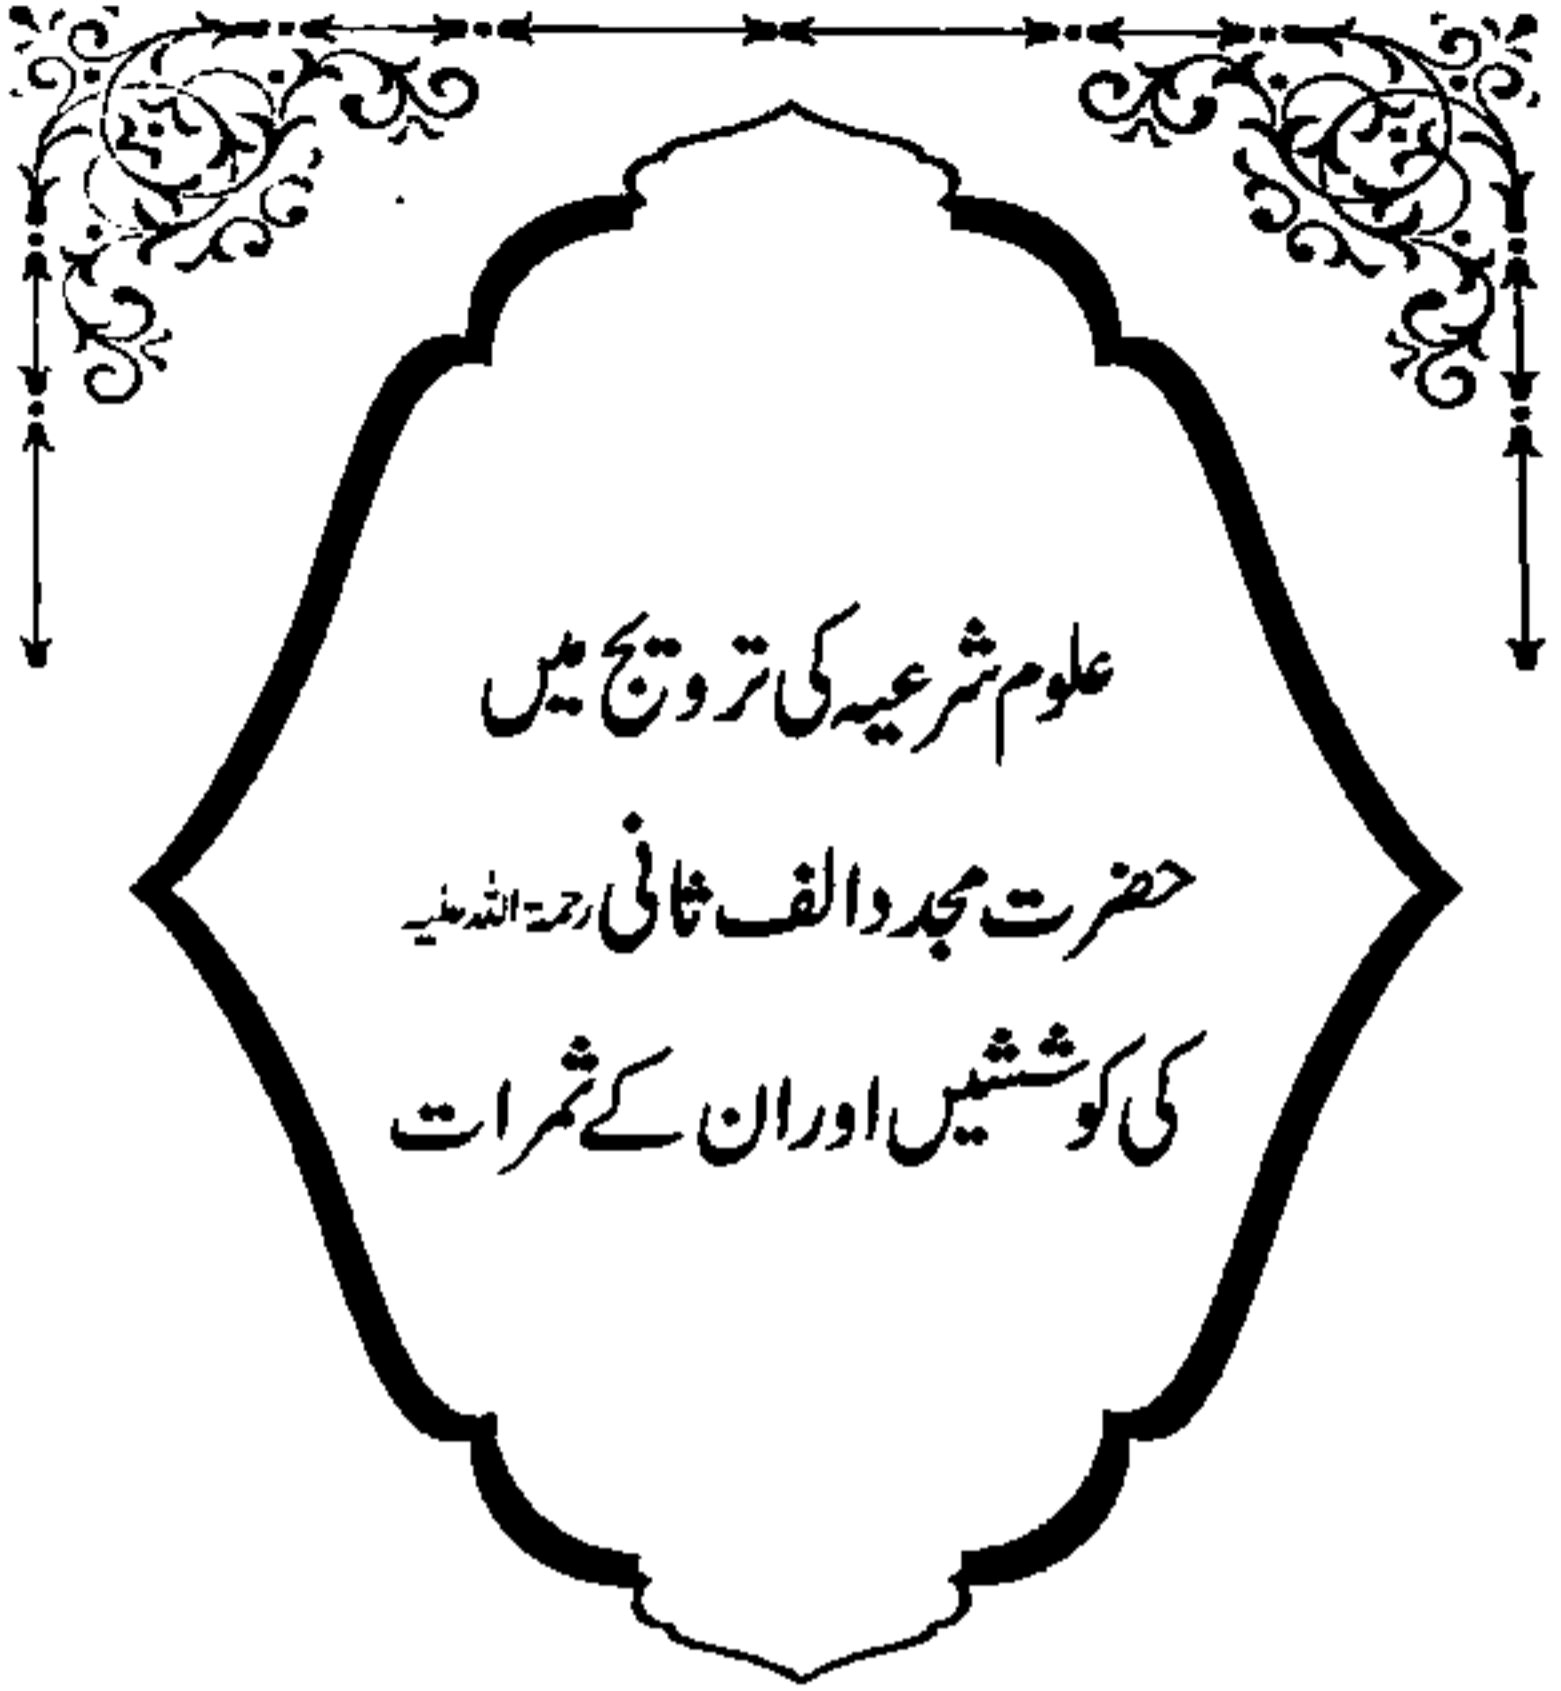 علوم شرعیہ کی ترویج میں
حضرت مجدد الف ثانی رحمۃ اللہ علیہ
کی کوششیں اور ان کے ثمرات